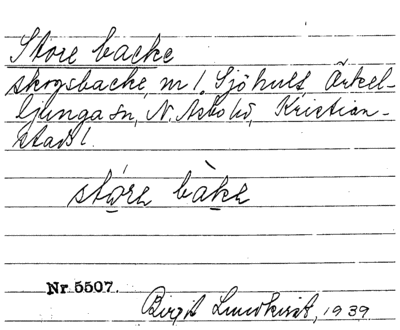 Store backe
skogsbacke, m 1, Sjöhult, Örkel-
ljunga sn, N. Åsbo hd, Kristian-
stads l.
stǿre bàke
Nr 5507.
Birgit Lundkvist, 1939